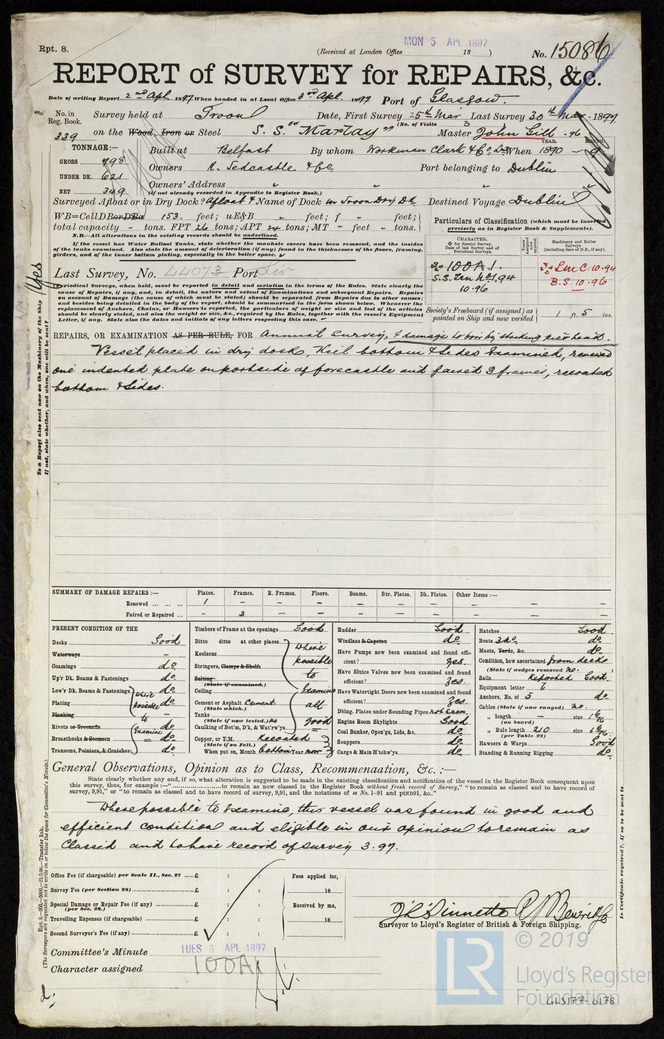 Rpt. 8.
(Received at London Office MON 5 APL 1897 18 )
No. 15086
REPORT of SURVEY for REPAIRS, &c.
Date of writing Report 2nd Apl. 1897 When handed in at Local Office 3rd Apl. 1897 Port of Glasgow.
No. in Reg. Book. Survey held at Troon Date, First Survey 25th Mar Last Survey 30th Mar 1897
(No. of Visits
339 on the Wood, Iron or Steel S.S. "Marlay" Master John Gill - 96
TONNAGE:— Built at Belfast By whom Workman Clark & Co Ld When 1890 - 9
YEAR. MONTH.
GROSS 798 Owners R. Tedcastle & Co Port belonging to Dublin
UNDER DK. 621
NET 349 Owners' Address
(If not already recorded in Appendix to Register Book.)
Surveyed Afloat or in Dry Dock? Afloat & Name of Dock in Troon Dry Dk Destined Voyage Dublin
WB=CellDBorDBa 153 feet; uE&B feet; f feet;
total capacity - tons. FPT 26 tons; APT 24 tons; MT - feet - tons.
Particulars of Classification (which must be inserted precisely as in Register Book & Supplements).
If the vessel has Water Ballast Tanks, state whether the manhole covers have been removed, and the insides
of the tanks examined. Also state the amount of deterioration (if any) found in the thicknesses of the floors, framing,
girders, and of the inner bottom plating, especially in the boiler space.
Last Survey, No. 44073 Port Liv
100A1
S.S. Lan No1,94
10.96
L.M.C. 10.94
B.S. 10.96
Periodical Surveys, when held, must be reported in detail and seriatim in the terms of the Rules. State clearly the
cause of Repairs, if any, and, in detail, the nature and extent of Examinations and subsequent Repairs. Repairs
on account of Damage (the cause of which must be stated) should be separated from Repairs due to other causes;
and besides being detailed in the body of the report, should be summarised in the form shown below. Whenever the
replacement of Anchors, Chains, or Hawsers is reported, the particulars of weight or size and test of the articles
should be clearly stated, and also the weight or size, &c., required by the Rules, together with the vessel's Equipment
Letter, if any. State also the dates and initials of any letters respecting this case.
Society's Freeboard (if assigned) as painted on Ship and now verified ft. 5 ins.
REPAIRS, OR EXAMINATION AS PER RULE, FOR Annual Survey, & damage to bow by striking pier head.
Vessel placed in dry dock, Keel bottom & sides examined, renewed
one indented plate on portside of forecastle and faired 3 frames, recoated
bottom & sides.
SUMMARY OF DAMAGE REPAIRS:— Plates. Frames. R. Frames. Floors. Beams. Str. Plates. Dk. Plates. Other Items:—
Renewed ... 1
Faired or Repaired ... 3
PRESENT CONDITION OF THE
Decks Good
Waterways
Coamings do
Up'r Dk. Beams & Fastenings do
Low'r Dk. Beams & Fastenings where do
Plating possible do
Planking to
Rivets or Treenails Examine do
Breasthooks & Stemson do
Transoms, Pointers, & Crutches do
Timbers of Frame at the openings Good
Ditto ditto at other places
Keelsons where
Stringers, Clamps & Shelfs possible
Salting (State if examined.) to
Ceiling Examine
Cement or Asphalt Cement (State which.) all
Tanks (State if now tested.) good
Caulking of Bot'm, D'k, & Wat'rw'ys
Copper, or T.M. Recoated (State if on Felt.)
When put on, Month bottom Year now
Rudder Good
Windlass & Capstan do
Have Pumps now been examined and found efficient? Yes.
Have Sluice Valves now been examined and found efficient? Yes.
Have Watertight Doors now been examined and found efficient? Yes
Dblng. Plates under Sounding Pipes
Engine Room Skylights Good
Coal Bunker, Open'gs, Lids, &c. do
Scuppers do
Cargo & Main H'tchw'ys do
Hatches Good
Boats 3 No. do
Masts, Yards, &c. do
Condition, how ascertained from decks
(State if wedges removed.) no.
Sails Reported Good
Equipment letter
Anchors, No. of 5 do
Cables (State if now ranged) no.
„ length — size 1 6/16
(on board)
„ Rule length 210 size 1 6/16
(per Table 22)
Hawsers & Warps Good
Standing & Running Rigging do
General Observations, Opinion as to Class, Recommendation, &c.:—
State clearly whether any, and if so, what alteration is suggested to be made in the existing classification and notification of the vessel in the Register Book consequent upon
this survey, thus, for example:—"to remain as now classed in the Register Book without fresh record of Survey," "to remain classed and to have record of
survey, 9,91," or "to remain as classed and to have record of survey, 9,91, and the notations of ss No. 1-91 and ptND91, &c."
Where possible to Examine, this vessel was found in good and
efficient condition and eligible in our opinion to remain as
Classed and to have record of Survey 3.97.
Office Fee (if chargeable) per Scale II., Sec. 27 ... £
Survey Fee (per Section 28) ... £
Special Damage or Repair Fee (if any) (per Sec. 28.) ... £
Travelling Expenses (if chargeable) ... £
Second Surveyor's Fee (if any) ... £
Fees applied for,
18
Received by me,
18
Surveyor to Lloyd's Register of British & Foreign Shipping.
Committee's Minute TUES 6 APL 1897
Character assigned 100A1
Is a Report also sent now on the Machinery of the Ship Yes
If not, state whether, and when, one will be sent?
© 2019
LR
Lloyd's Register
Foundation
GLS177-0178